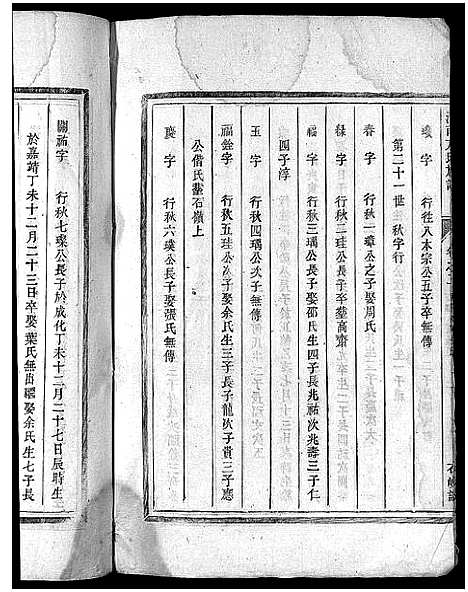 璣字　行往八本宗公五子卒無傳
第二十一世生秋字行
春字　行秋一璋公之子娶周氏
祿字　行秋二珪公長子卒葬高齋
福字　行秋三瑀公長子娶邵氏生四子長兆祐次兆壽三子仁
四子淳
玉字　行秋四瑀公次子無傳
福餘字　行秋五珪公次子娶余氏生三子長子龍次子貴三子應
公偕氏塟石嶺上
慶字　行秋六璞公長子娶張氏無傳
關祐字　行秋七璞公長子於成化丁未十二月二十七日辰時生
於嘉靖丁未十二月二十三日卒娶葉氏無出繼娶余氏生七子長